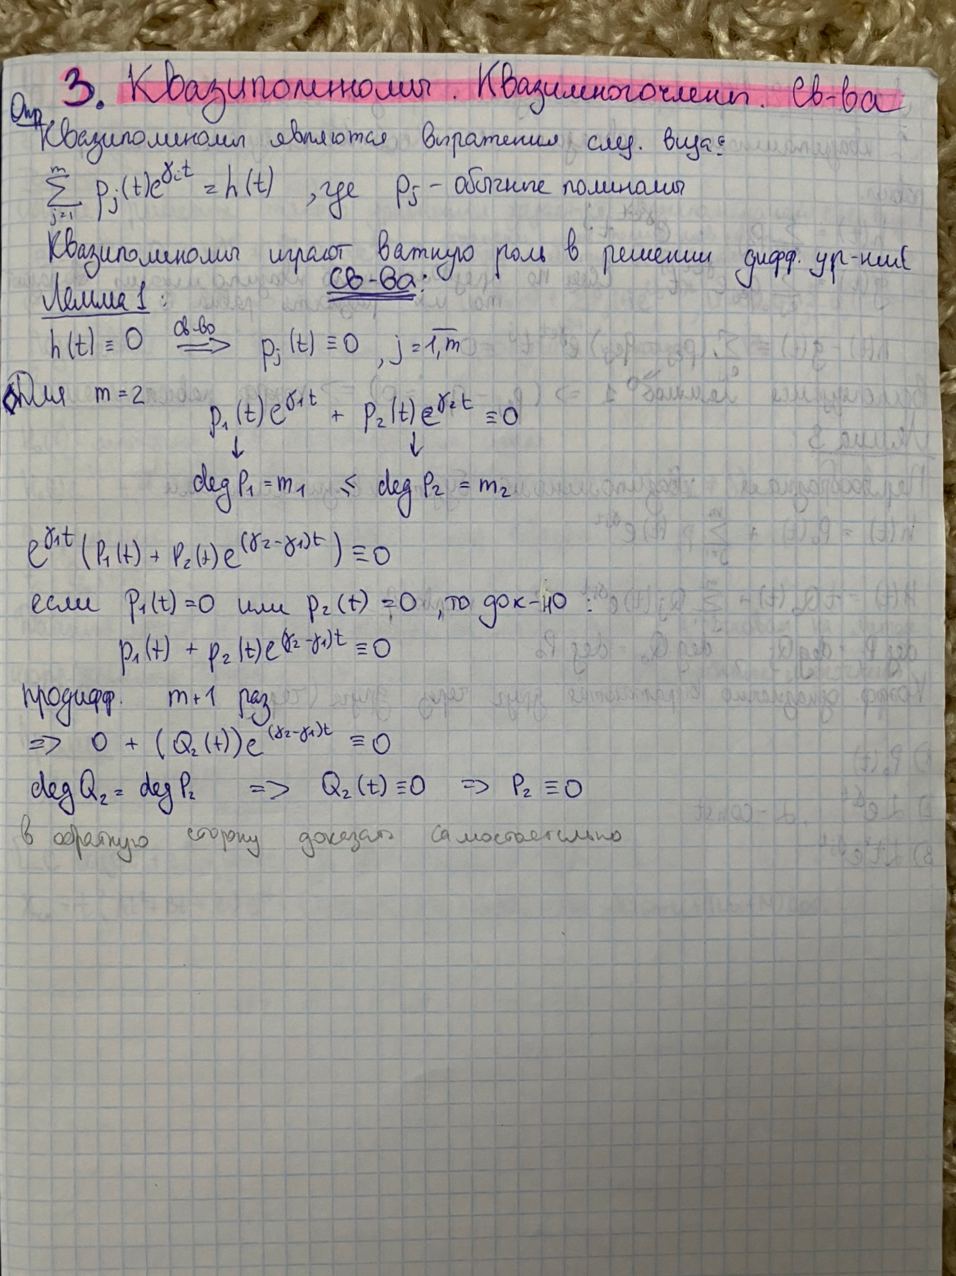 3. Квазиполиномы. Квазимногочлены. Св-ва
Опр
Квазиполиномом являются выражения след. вида:
∑_{j=1}^{m} p_j(t)e^{γ_j t} = h(t) , где p_j - обычные полиномы
Квазиполиномы играют важную роль в решении дифф. ур-ний
Св-ва:
Лемма 1:
h(t) ≡ 0 св-во ⟹ p_j(t) ≡ 0 , j = 1,m̅
Для m = 2
p₁(t)e^{γ₁t} + p₂(t)e^{γ₂t} ≡ 0
↓ ↓
deg P₁ = m₁ ≤ deg P₂ = m₂
e^{γ₁t}(P₁(t) + P₂(t)e^{(γ₂-γ₁)t}) ≡ 0
если p₁(t) = 0 или p₂(t) = 0 , то док-но :
p₁(t) + p₂(t)e^{(γ₂-γ₁)t} ≡ 0
продифф. m+1 раз
=> 0 + (Q₂(t))e^{(γ₂-γ₁)t} ≡ 0
deg Q₂ = deg P₂ => Q₂(t) ≡ 0 => P₂ ≡ 0
в обратную сторону доказать самостоятельно